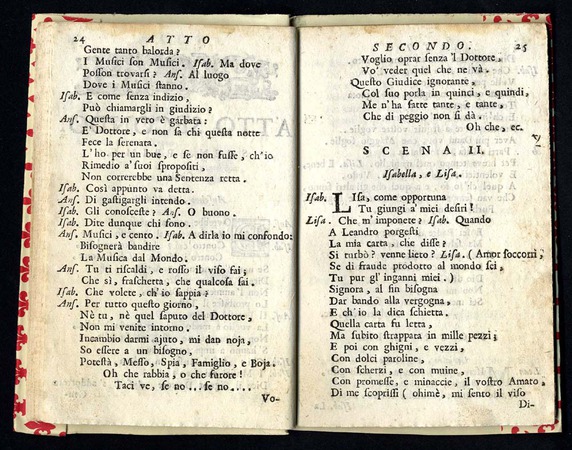 24 ATTO
Gente tanto balorda?
I Musici son Musici. Isab. Ma dove
Posson trovarsi? Ans. Al luogo
Dove i Musici stanno.
Isab. E come senza indizio,
Può chiamargli in giudizio?
Ans. Questa in vero è garbata:
E' Dottore, e non sa chi questa notte
Fece la serenata.
L'ho per un bue, e se non fusse, ch'io
Rimedio a' suoi spropositi,
Non correrebbe una Sentenza retta.
Isab. Così appunto va detta.
Ans. Di gastigargli intendo.
Isab. Gli conosceste? Ans. O buono.
Isab. Dite dunque chi sono.
Ans. Musici, e cento. Isab. A dirla io mi confondo:
Bisognerà bandire
La Musica dal Mondo.
Ans. Tu ti riscaldi, e rosso il viso fai;
Che sì, fraschetta, che qualcosa sai.
Isab. Che volete, ch'io sappia?
Ans. Per tutto questo giorno,
Nè tu, nè quel saputo del Dottore,
Non mi venite intorno.
Incambio darmi ajuto, mi dan noja,
So essere a un bisogno,
Potestà, Messo, Spia, Famiglio, e Boja.
Oh che rabbia, o che furore!
Taci ve, se no... se no....
Vo-
SECONDO. 25
Voglio oprar senza 'l Dottore,
Vo' veder quel che ne và.
Questo Giudice ignorante,
Col suo porla in quinci, e quindi,
Me n'ha fatte tante, e tante,
Che di peggio non si dà.
Oh che, ec.
SCENA II.
Isabella, e Lisa.
Isab. LIsa, come opportuna
Tu giungi a' miei desiri!
Lisa. Che m'imponete? Isab. Quando
A Leandro porgesti
La mia carta, che disse?
Si turbò? venne lieto? Lisa. (Amor soccorri,
Se di fraude prodotto al mondo sei,
Tu pur gl'inganni miei.)
Signora, al fin bisogna
Dar bando alla vergogna,
E ch'io la dica schietta.
Quella carta fu letta,
Ma subito strappata in mille pezzi;
E poi con ghigni, e vezzi,
Con dolci paroline,
Con scherzi, e con muine,
Con promesse, e minaccie, il vostro Amato,
Di me scoprissi (ohimè, mi sento il viso
Di-